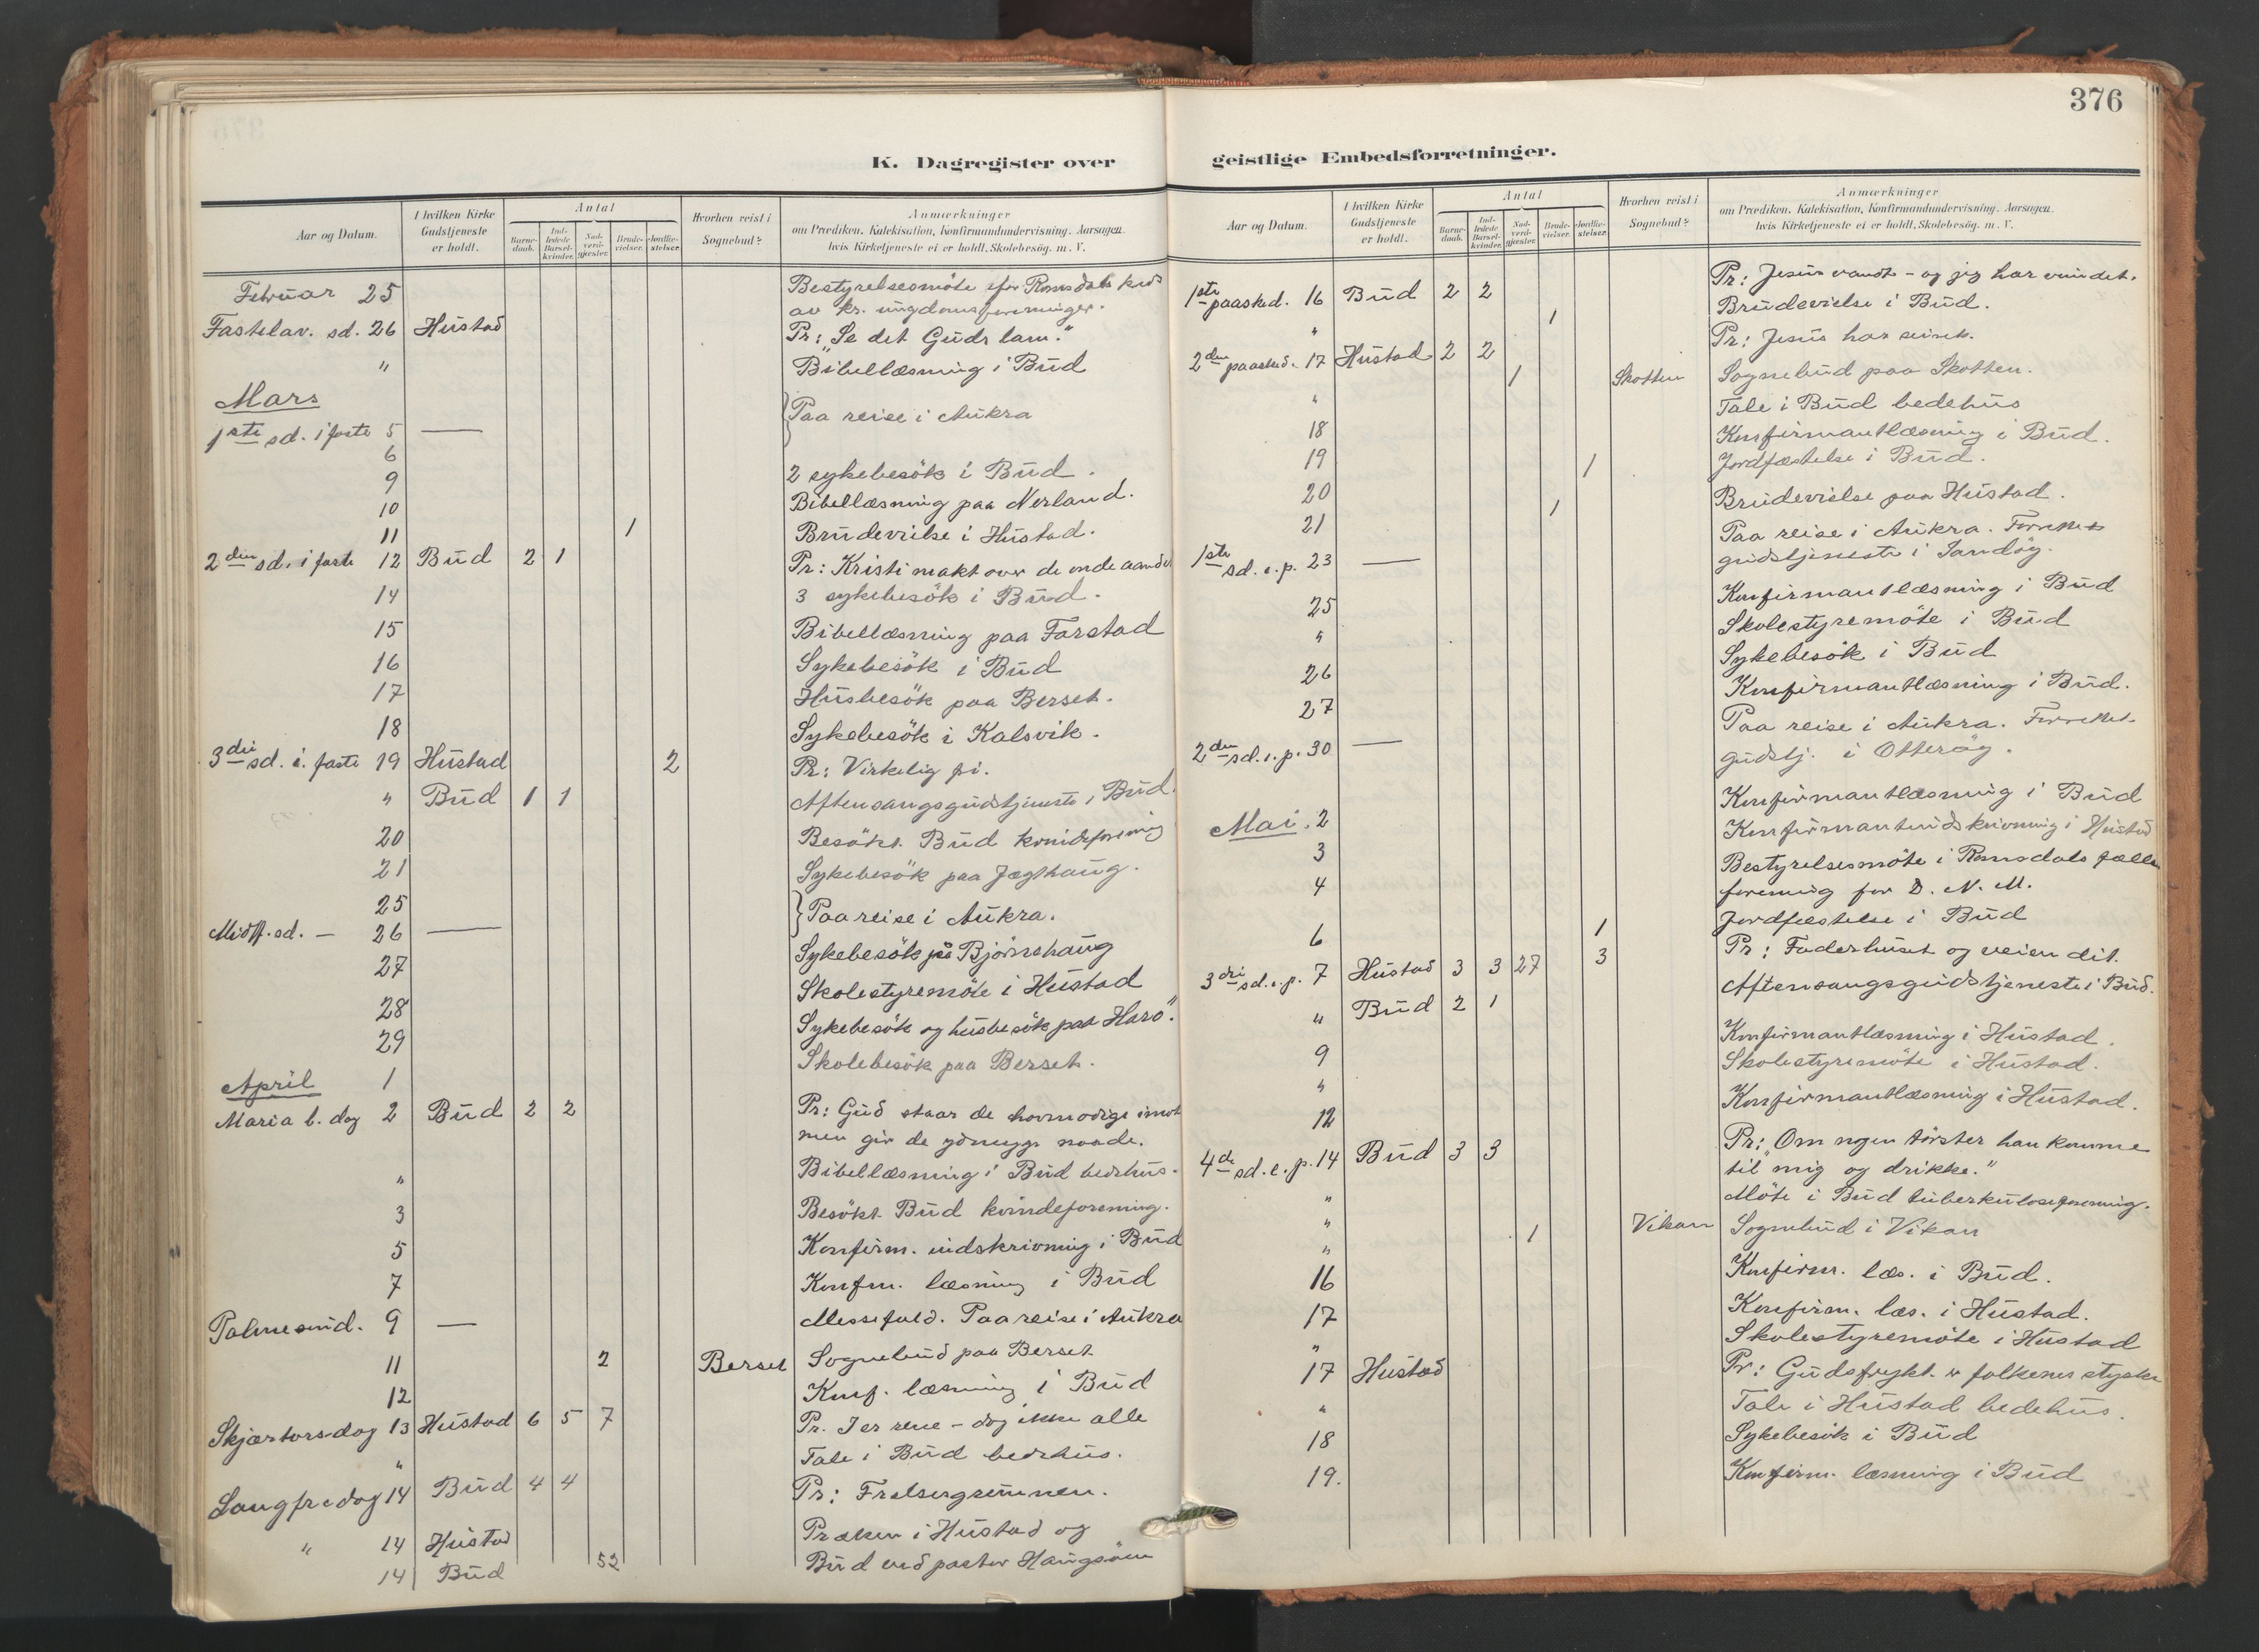 376
K. Dagregister over geistlige Embedsforretninger.
Aar og Datum. I hvilken Kirke Gudstjeneste er holdt. Antal Barnedaab. Indledede Barselkvinder. Nadverdgjæster. Brudevielser. Jordfæstelser. Hvorhen reist i Sognebud? Anmærkninger om Prædiken, Katekisation, Konfirmandundervisning. Aarsagen hvis Kirketjeneste ei er holdt, Skolebesøg. m. V.
Februar 25 Bestyrelsesmöte for Romsdals kreds
av kr. ungdomsforeninger.
Fastelav. sd. 26 Hustad Pr: "Se det Guds lam."
" Bibellæsning i Bud
Mars
1ste sd. i faste 5 — Paa reise i Aukra
6
9 2 sykebesök i Bud.
10 Bibellæsning paa Nerland.
11 1 Brudevielse i Hustad.
2den sd. i faste 12 Bud 2 1 Pr: Kristi makt over de onde aander
14 3 sykebesök i Bud.
15 Bibellæsning paa Farstad
16 Sykebesök i Bud
17 Husbesök paa Berset.
18 Sykebesök i Kalsvik.
3die sd. i. faste 19 Hustad 2 Pr: Virkelig fri.
" Bud 1 1 Aftensangsgudstjeneste i Bud.
20 Besökt Bud kvindeforening
21 Sykebesök paa Jægthaug.
25 Paa reise i Aukra.
Midf. sd. — 26 —
27 Sykebesök på Bjørnshaug
Skolestyremöte i Hustad
28 Sykebesök og husbesök paa Harö.
29 Skolebesök paa Berset.
April 1
Maria b. dag 2 Bud 2 2 Pr: Gud staar de hovmodige imot
men gir de ydmyge naade.
" Bibellæsning i Bud bedehus.
3 Besökt Bud kvindeforening.
5 Konfirm. indskrivning i Bud
7 Konfm. læsning i Bud
Palmesund. 9 — Messefald. Paa reise i Aukra
11 2 Berset Sognebud paa Berset
12 Konf. læsning i Bud
Skjærtorsdag 13 Hustad 6 5 7 Pr. I er rene – dog ikke alle
" Tale i Bud bedehus.
Langfredag 14 Bud 4 4 Pr: Frelsergrunnen.
" 14 Hustad Præken i Hustad og
14 Bud 52 Bud ved pastor Haugsöen
Aar og Datum. I hvilken Kirke Gudstjeneste er holdt. Antal Barnedaab. Indledede Barselkvinder. Nadverdgjæster. Brudevielser. Jordfæstelser. Hvorhen reist i Sognebud? Anmærkninger om Prædiken, Katekisation, Konfirmandundervisning. Aarsagen hvis Kirketjeneste ei er holdt, Skolebesøg. m. V.
1ste paasked. 16 Bud 2 2 Pr: Jesus vandt – og jeg har vundet.
" 1 Brudevielse i Bud.
2den paasked. 17 Hustad 2 2 Pr: Jesus har seiret.
" 1 Skotten Sognebud paa Skotten.
Tale i Bud bedehus
18 Konfirmantlæsning i Bud.
19 1 Jordfæstelse i Bud.
20 1 Brudevielse paa Hustad.
21 Paa reise i Aukra. Forrettet
1ste sd. e. p. 23 — gudstjeneste i Sandöy.
25 Konfirmantlæsning i Bud
" Skolestyremöte i Bud
Sykebesök i Bud
26 Konfirmantlæsning i Bud.
27 Paa reise i Aukra. Forrettet
2den sd. e. p. 30 — gudstj. i Otteröy.
Mai. 2 Konfirmantlæsning i Bud
3 Konfirmantindskrivning i Hustad
4 Bestyrelsesmöte i Romsdals fælles
forening for D. N. M.
6 1 Jordfæstelse i Bud
3die sd. e. p. 7 Hustad 3 3 27 3 Pr: Faderhuset og veien dit.
" Bud 2 1 Aftensangsgudstjeneste i Bud.
9 Konfirmantlæsning i Hustad.
" Skolestyremöte i Hustad.
12 Konfirmantlæsning i Hustad.
4de sd. e. p. 14 Bud 3 3 Pr: "Om nogen törster han komme
til mig og drikke."
" Möte i Bud tuberkuloseforening.
" 1 Vikan Sognebud i Vikan
"
16 Konfirm. læs. i Bud.
17 Konfirm. læs. i Hustad.
" Skolestyremöte i Hustad
17 Hustad Pr: Gudsfrykt er folkenes styrke
" Tale i Hustad bedehus.
18 Sykebesök i Bud
19. Konfirm. læsning i Bud